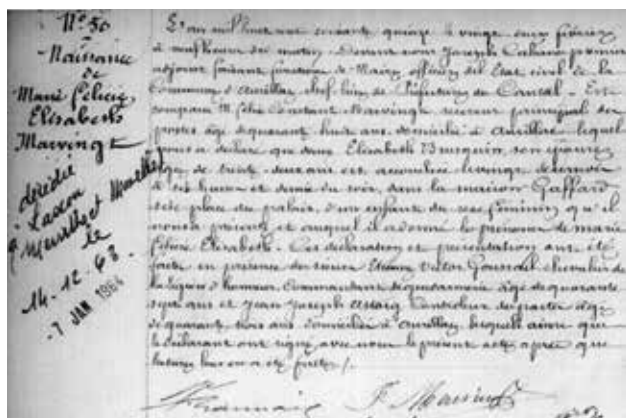 N° 50
Naissance
de
Marie Félicie
Elisabeth
Marvingt
décédée
à Laxou
(Meurthe et Moselle)
le
14-12-63
-7 JAN 1964
L'an mil huit cent soixante quinze le vingt deux février
à neuf heures du matin. Devant nous Joseph Cabanes premier
adjoint faisant fonction de Maire officier de l'Etat civil de la
Commune d'Aurillac chef lieu de Préfecture du Cantal - Est
comparu M. Félix Constant Marvingt receveur principal des
postes âgé de quarante huit ans domicilié à Aurillac lequel
nous a déclaré que dame Elisabeth Brusquin, son épouse
âgée de trente deux ans est accouchée le vingt de ce mois
à six heures et demie du soir, dans la maison Gaffard
sise place du palais, d'un enfant du sexe féminin qu'il
nous a présenté et auquel il a donné les prénoms de marie
félicie Elisabeth. Ces déclaration et présentation ont été
faites en présence des sieurs Etienne Victor chevalier de
la légion d'honneur, Commandant de gendarmerie âgé de quarante
sept ans et Jean Joseph Astorg Contrôleur des postes âgé
de quarante trois ans domiciliés à Aurillac, lesquels ainsi que
le déclarant ont signé avec nous le présent acte après que
lecture leur en a été faite /.
F. Marvingt